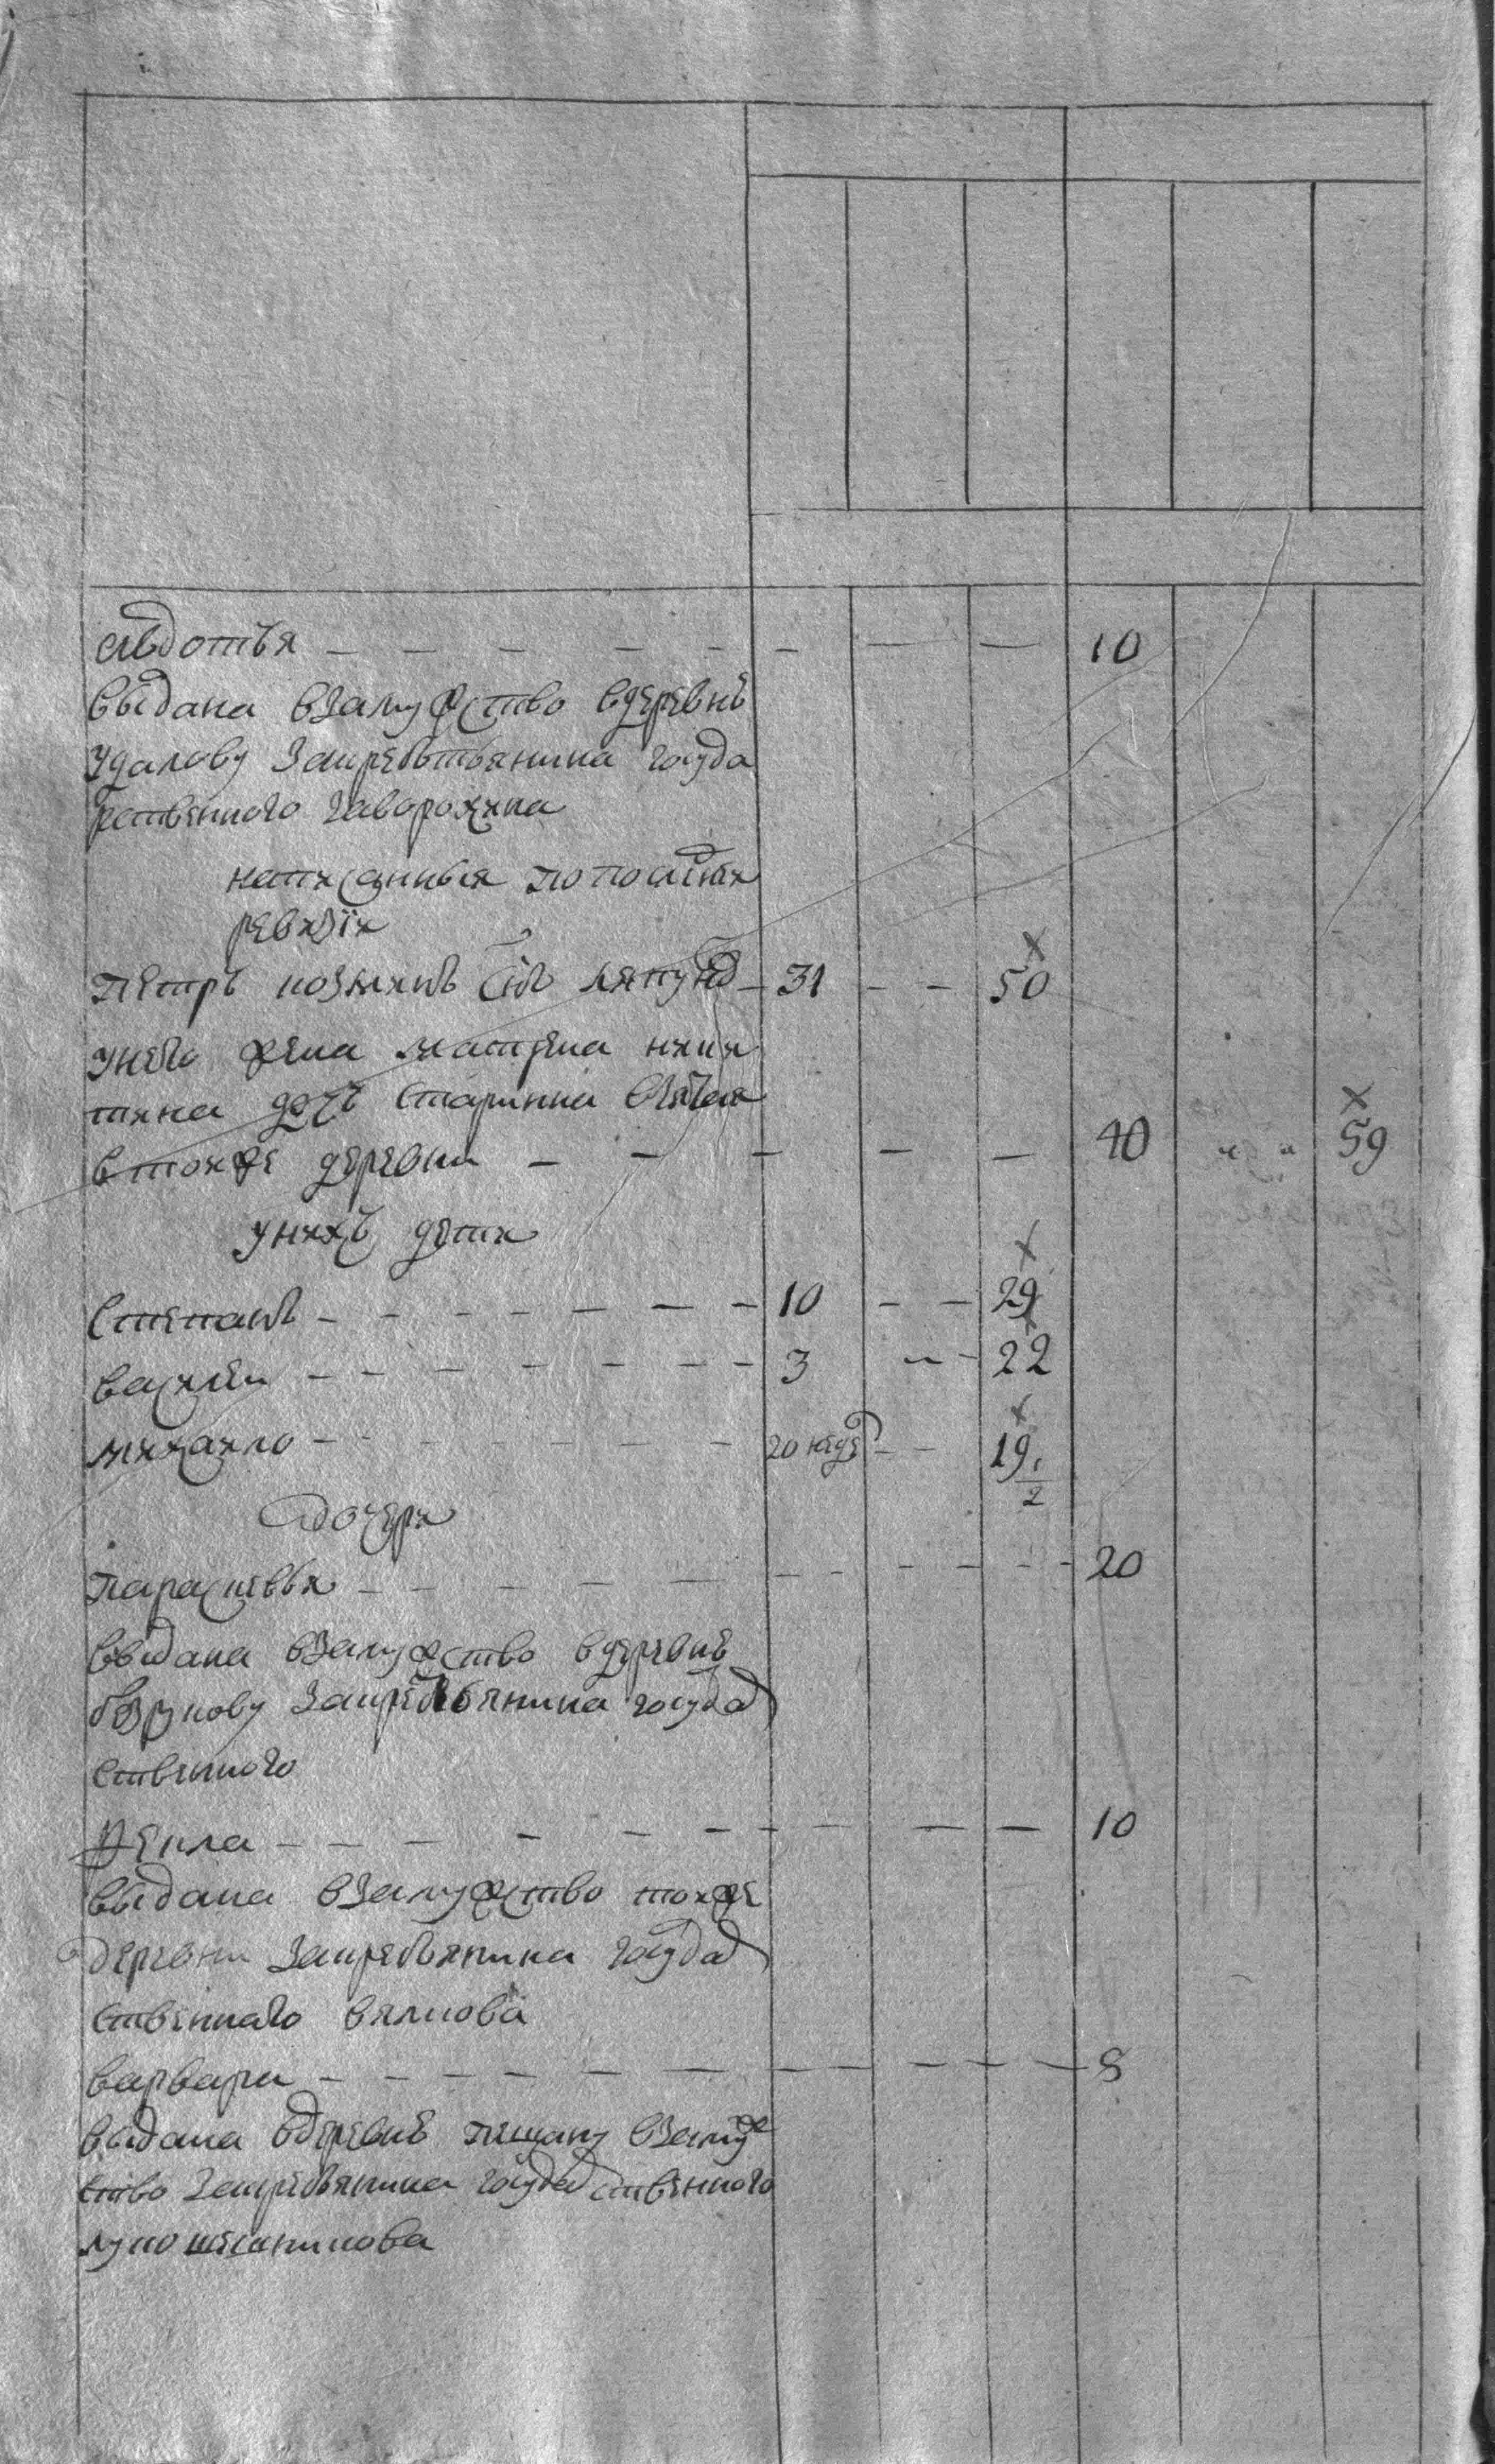 авдотья — — — — — — — — 10
выдана взамужство вдеревнѣ
удалову закрестьянина госуда
рственного заворохина
написанныя попослѣдней
ревизїи
петръ козминъ снъ ляпунов — 31 — — 50
унего жена матрена ники
тина дочь старинна взятая
втойже деревни — — — — — 40 „ „ 59
унихъ дети
степанъ — — — — — — 10 — — 29
василеи — — — — — — 3 — — 22
михаило — — — — — 20 неде — — 19 1/2
дочери
парасковья — — — — — — — — 20
выдана взамужство вдеревнѣ
закрестьянина государ
ственного
Фекла — — — — — — — — 10
выдана взамужство тойже
деревни закрестьянина государ
ственнаго вялкова
варвара — — — — — — — — 8
выдана вдеревнѣ пешану взамуж
ство закрестьянина государственного
лукошешникова